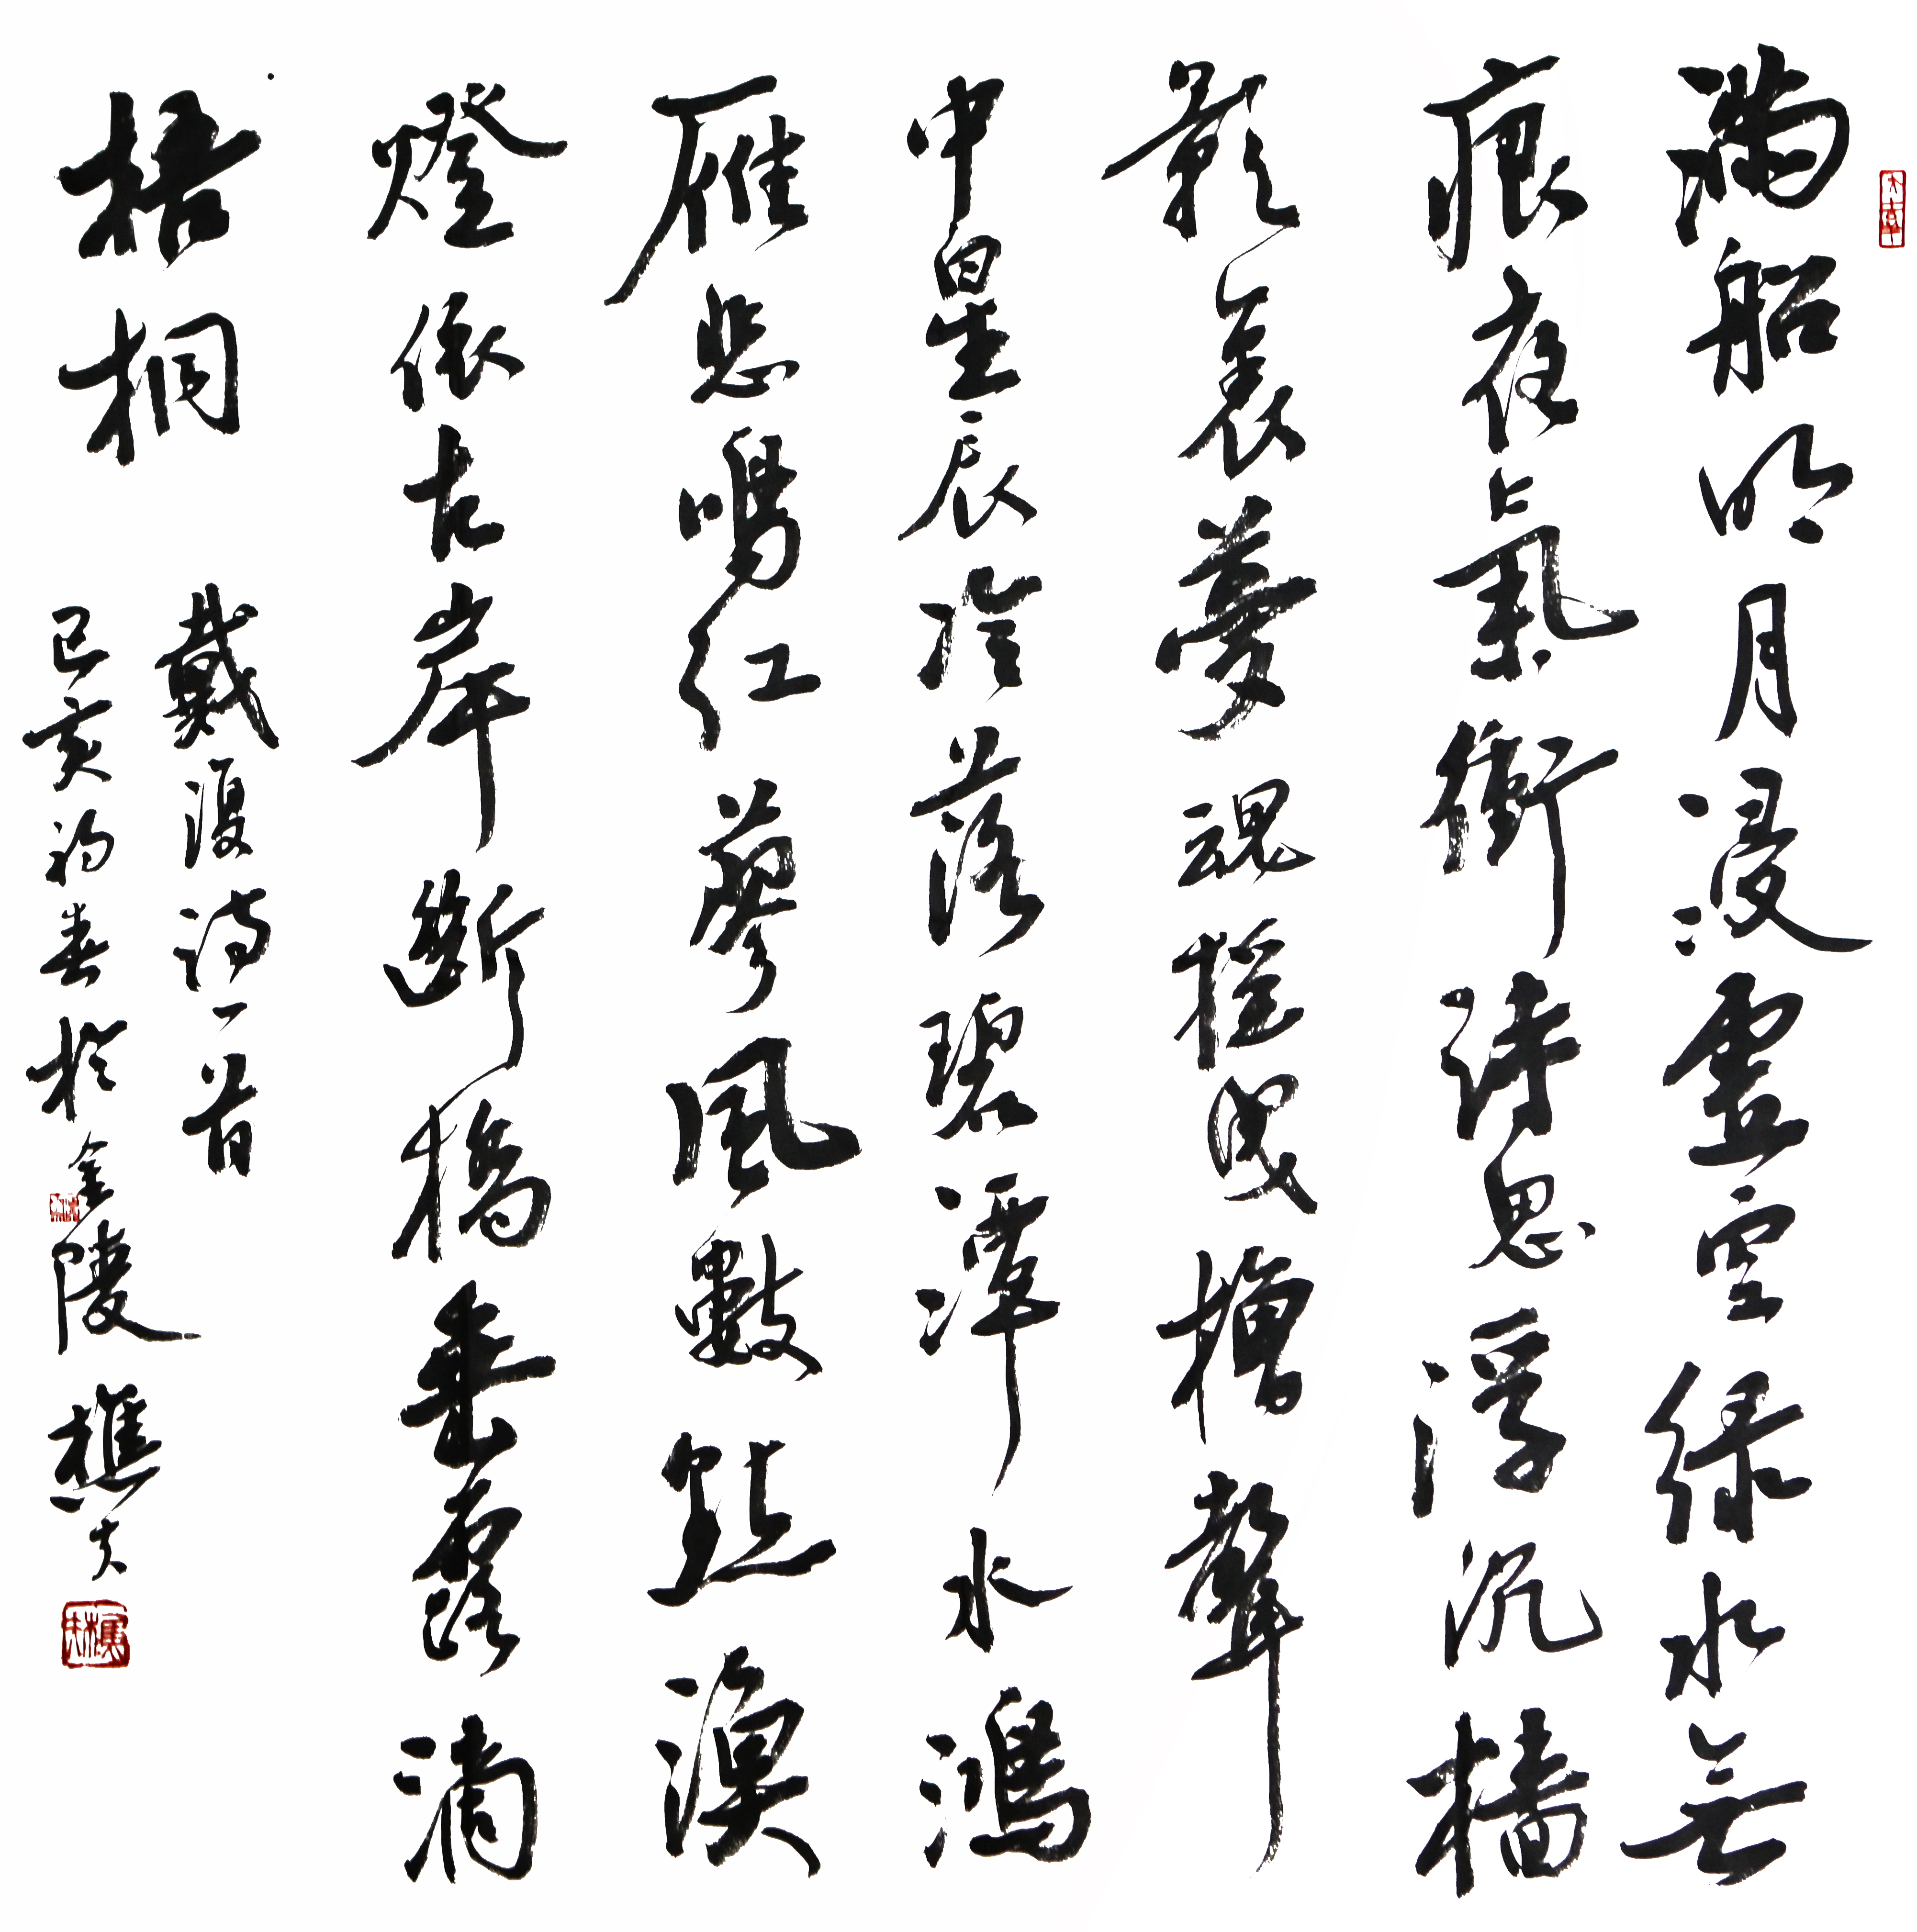 满船明月浸虚空绿水无
痕夜氣衝诗思浮沉樯
影裏夢魂摇曳橹聲
中星辰冷落碧潭水鴻
雁悲鳴红蓼風數點漁
燈依古岸断橋垂露滴
梧桐
戴復诗一首
己亥初春於金陵樵夫